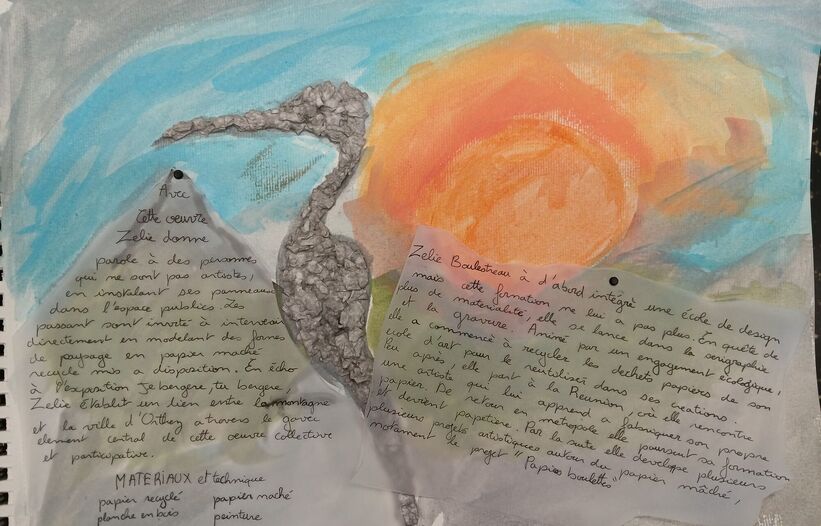 Avec
Cette oeuvre
Zelie donne
parole à des personnes
qui ne sont pas artistes,
en instalant ses panneaux
dans l'espace publics. Les
passant sont invité à intervenir
directement en modelant des formes
de paysage en papier maché
recycle mis a disposition. En écho
à l'exposition Je bergere, tu bergere,
Zelie établit un lien entre la montagne
et la ville d'Orthez a travers le gave
element central de cette oeuvre collective
et participative.
MATERIAUX et technique
papier recyclé papier maché
planche en bois peinture
Zelie Boulestreau à d'abord intégré une école de design
mais cette formation ne lui a pas plus. En quête de
plus de materialité, elle se lance dans la serigraphie
et la gravure. Animé par un engagement écologique,
elle a commencé à recycler les dechets papiers de son
ecole d'art pour le reutiliser dans ses creations.
Peu après, elle part à la Reunion, où elle rencontre
une artiste qui lui apprend a fabriquer son propre
papier. De retour en metropole elle poursuit sa formation
et devient papetière. Par la suite elle developpe plusieurs
plusieurs projets artistiques autour du papier mâché,
notament le projet "Papiers boulette"